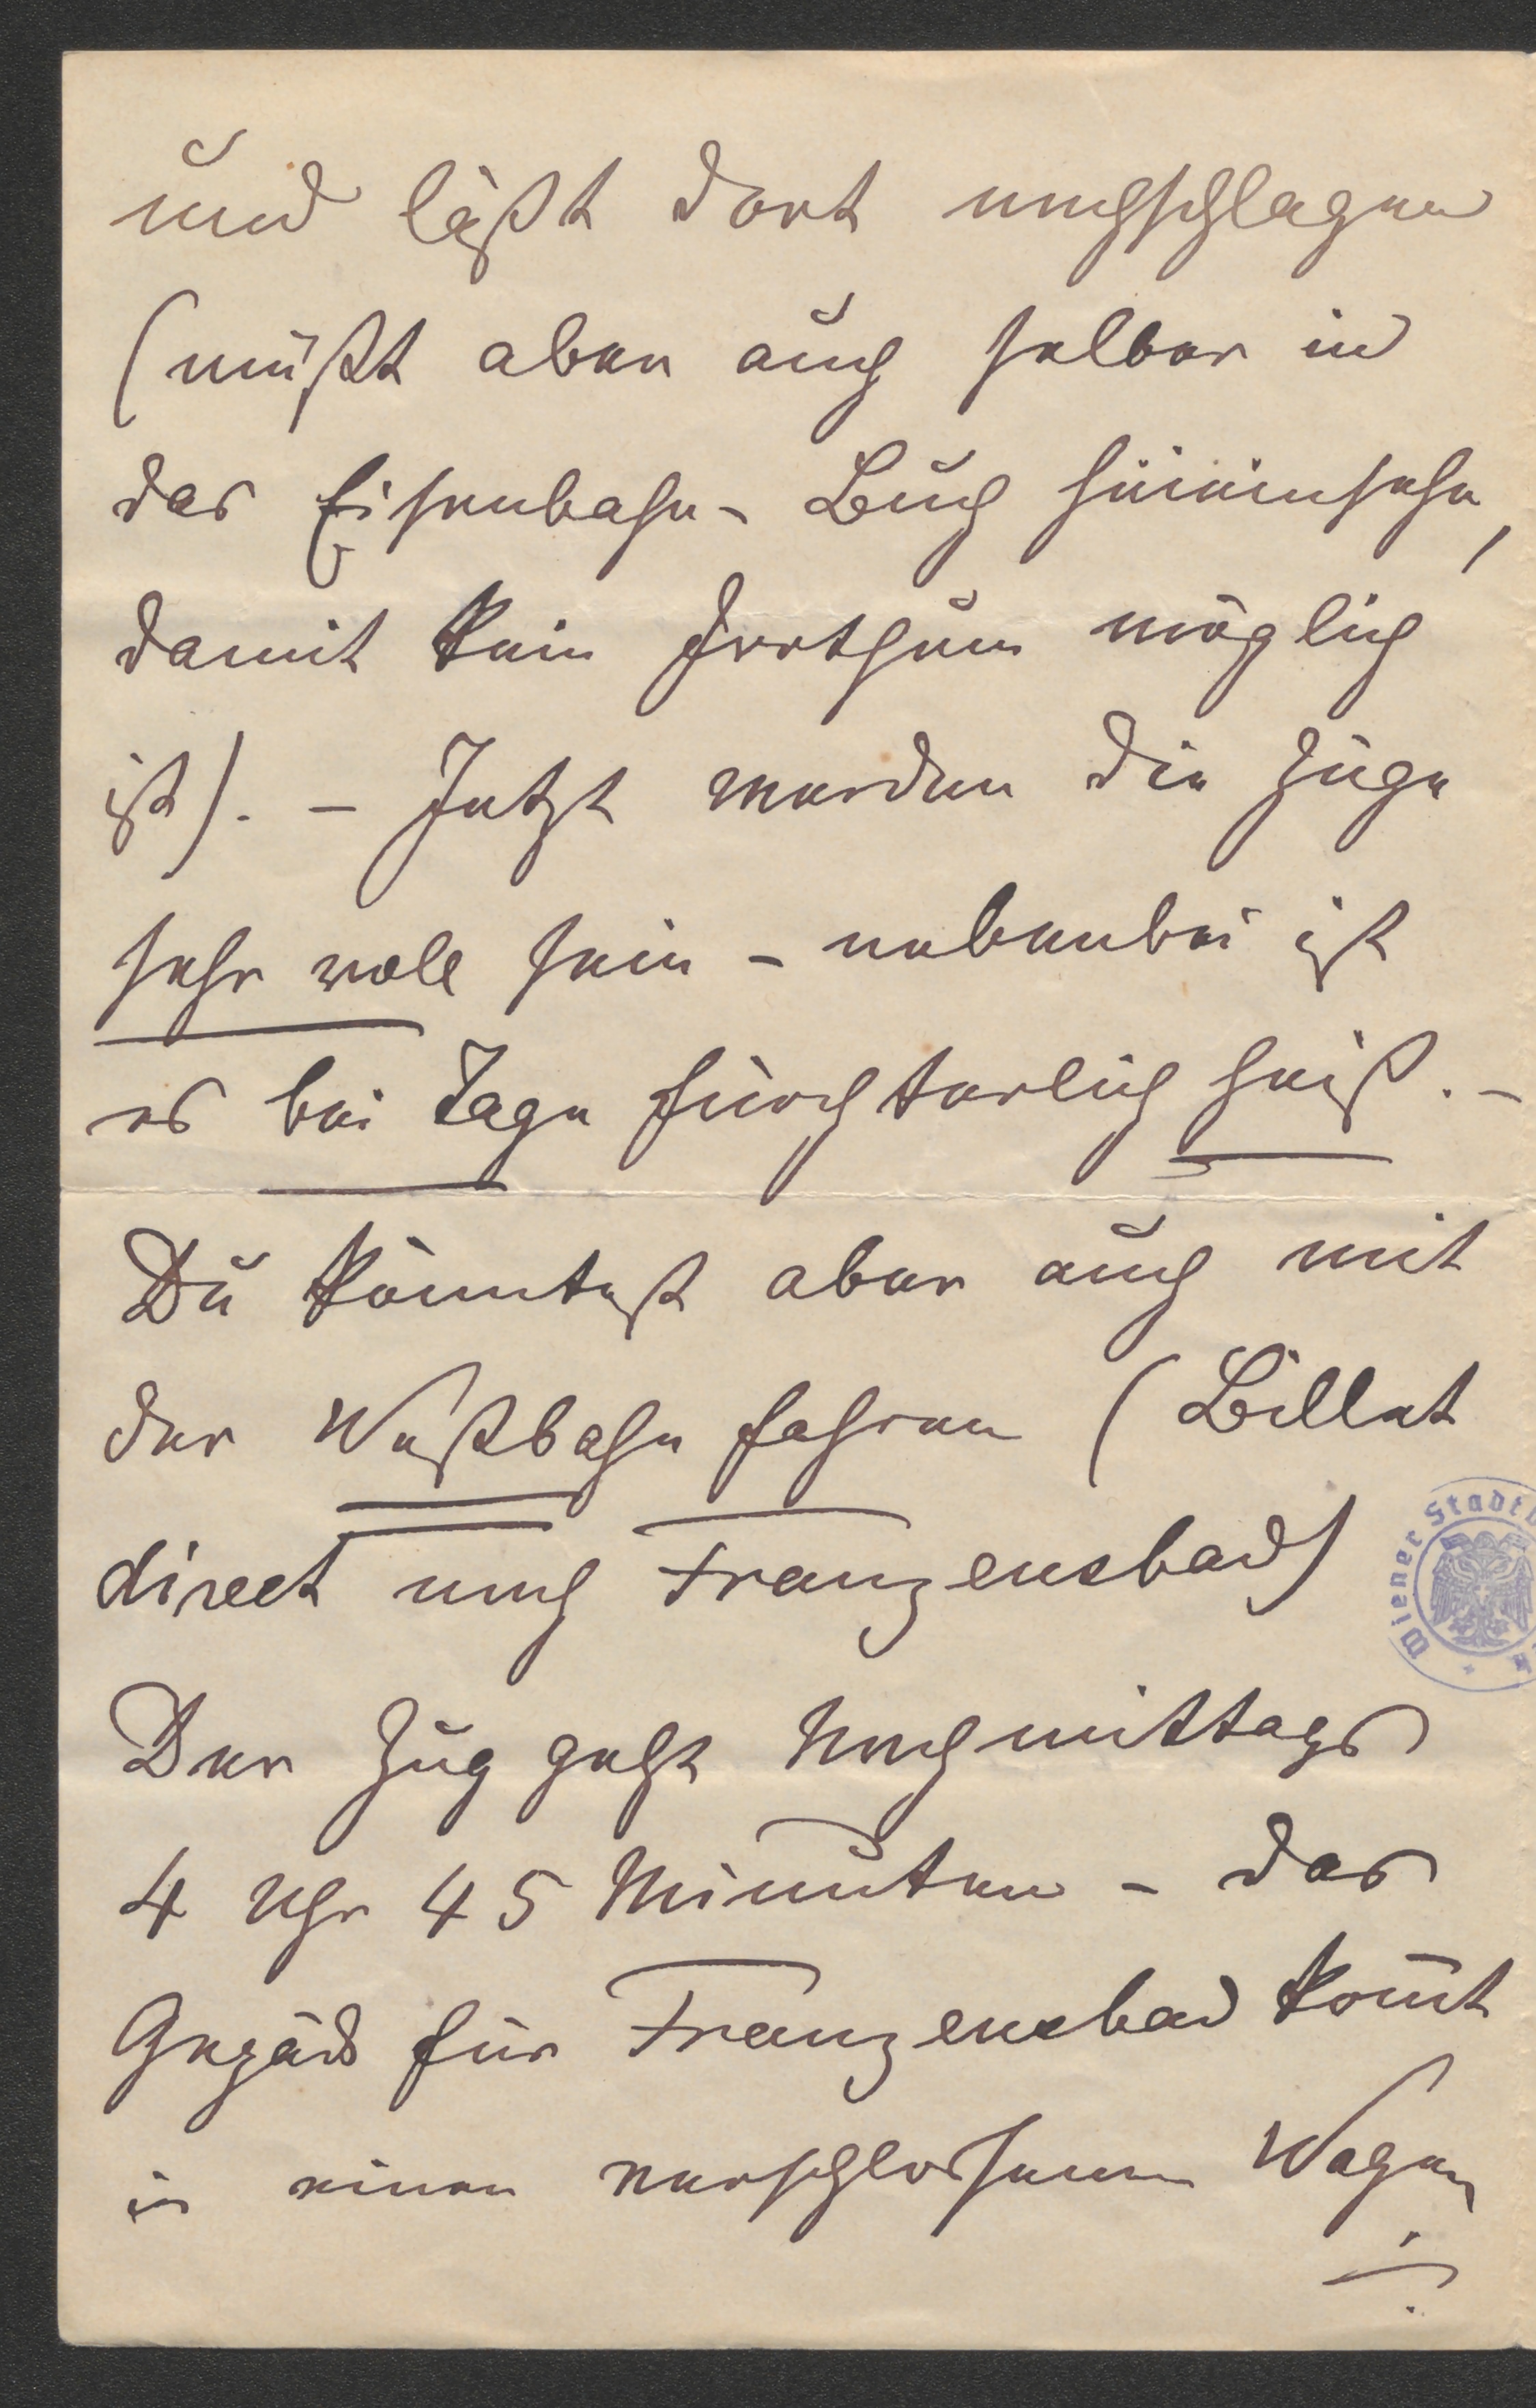 und läßt dort nachschlagen
(müßt aber auch selber in
das Eisenbahn-Buch hineinsehn,
damit kein Irrthum möglich
ist). – Jetzt werden die Züge
sehr voll sein – nebenbei ist
es bei Tage fürchterlich heiß. –
Du könntest aber auch mit
der Westbahn fahren (Billet
direct nach Franzensbad)
Wiener Stadt
Der Zug geht Nachmittags
4 Uhr 45 Minuten – das
Gepäck für Franzensbad kom̄t
in einen verschlossenen Wagen